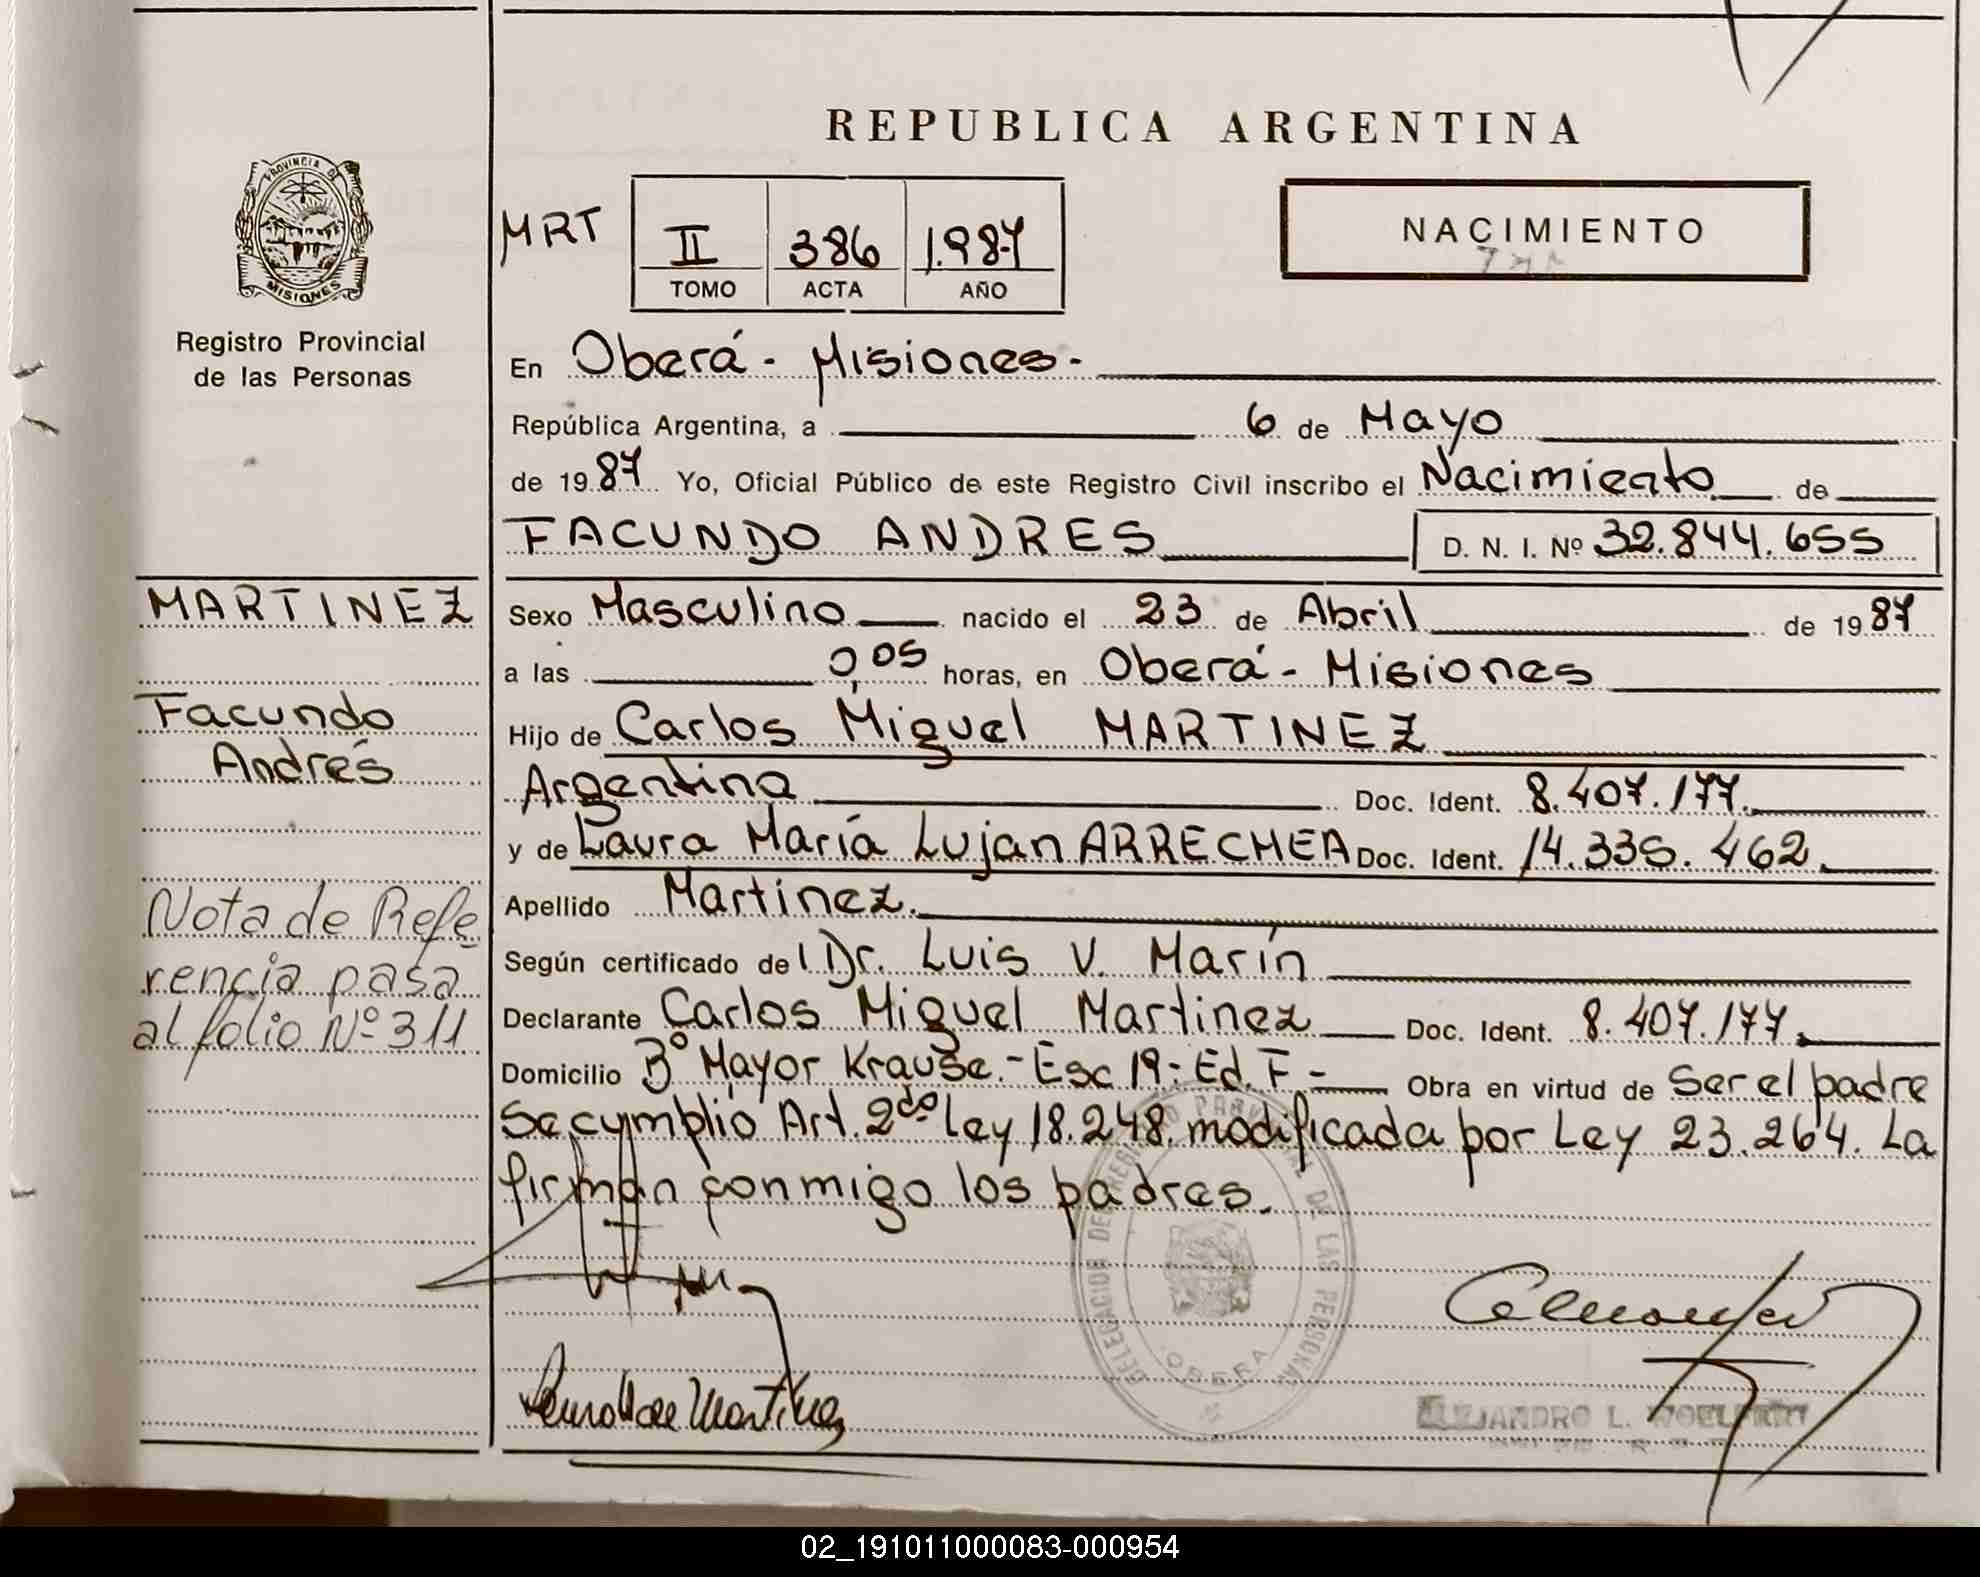 REPUBLICA ARGENTINA
PROVINCIA DE
MISIONES
Registro Provincial
de las Personas
MRT
II 386 1.987
TOMO ACTA AÑO
NACIMIENTO
En Oberá - Misiones -
República Argentina, a 6 de Mayo
de 1987 Yo, Oficial Público de este Registro Civil inscribo el Nacimiento de
FACUNDO ANDRES D. N. I. Nº 32.844.655
MARTINEZ
Facundo
Andrés
Sexo Masculino nacido el 23 de Abril de 1987
a las 0,05 horas, en Oberá - Misiones
Hijo de Carlos Miguel MARTINEZ
Argentina Doc. Ident. 8.407.177.
y de Laura María Lujan ARRECHEA Doc. Ident. 14.335.462.
Apellido Martinez.
Según certificado del Dr. Luis V. Marín
Declarante Carlos Miguel Martinez Doc. Ident. 8.407.177.
Domicilio Bº Mayor Krause.- Esc 19- Ed. F.- Obra en virtud de Ser el padre
Se cumplio Art. 2do Ley 18.248. modificada por Ley 23.264. La
firman conmigo los padres.
Nota de Refe
rencia pasa
al folio Nº 311
DELEGACION DEL REGISTRO PROVINCIAL DE LAS PERSONAS
OBERA
ALEJANDRO L. WOELFERT
02_191011000083-000954